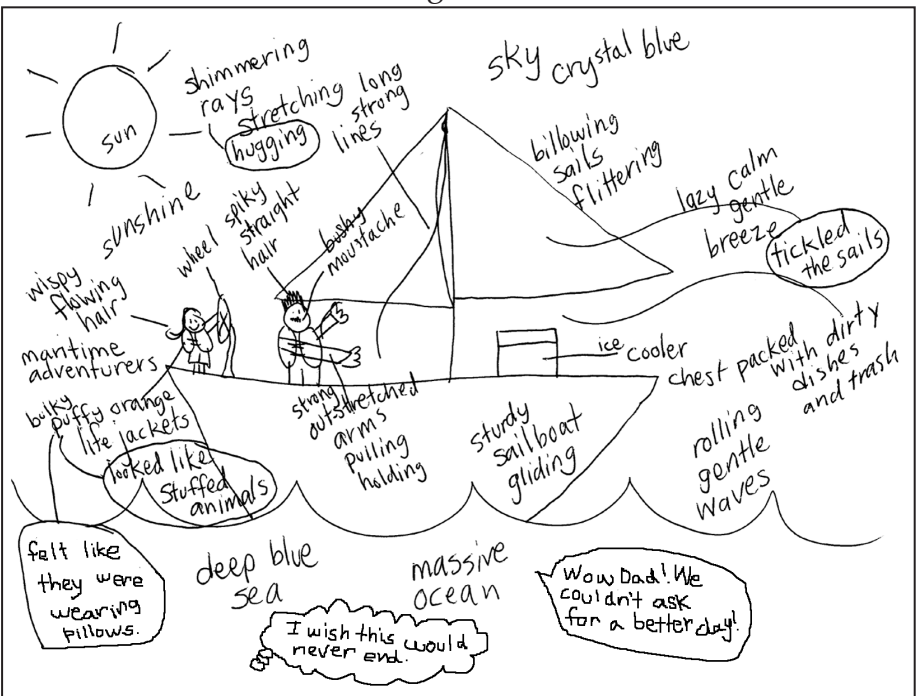 sun
shimmering
rays
stretching
hugging
long
strong
lines
sky crystal blue
billowing
sails
flittering
lazy calm
gentle
breeze
tickled
the sails
sunshine
wheel
spiky
straight
hair
bushy
moustache
wispy
flowing
hair
maritime
adventurers
ice cooler
chest packed
with dirty
dishes
and trash
bulky
puffy orange
life jackets
looked like
stuffed
animals
strong
outstretched
arms
pulling
holding
sturdy
sailboat
gliding
rolling
gentle
waves
felt like
they were
wearing
pillows.
deep blue
sea
massive
ocean
I wish this would
never end.
Wow Dad! We
couldn't ask
for a better day!